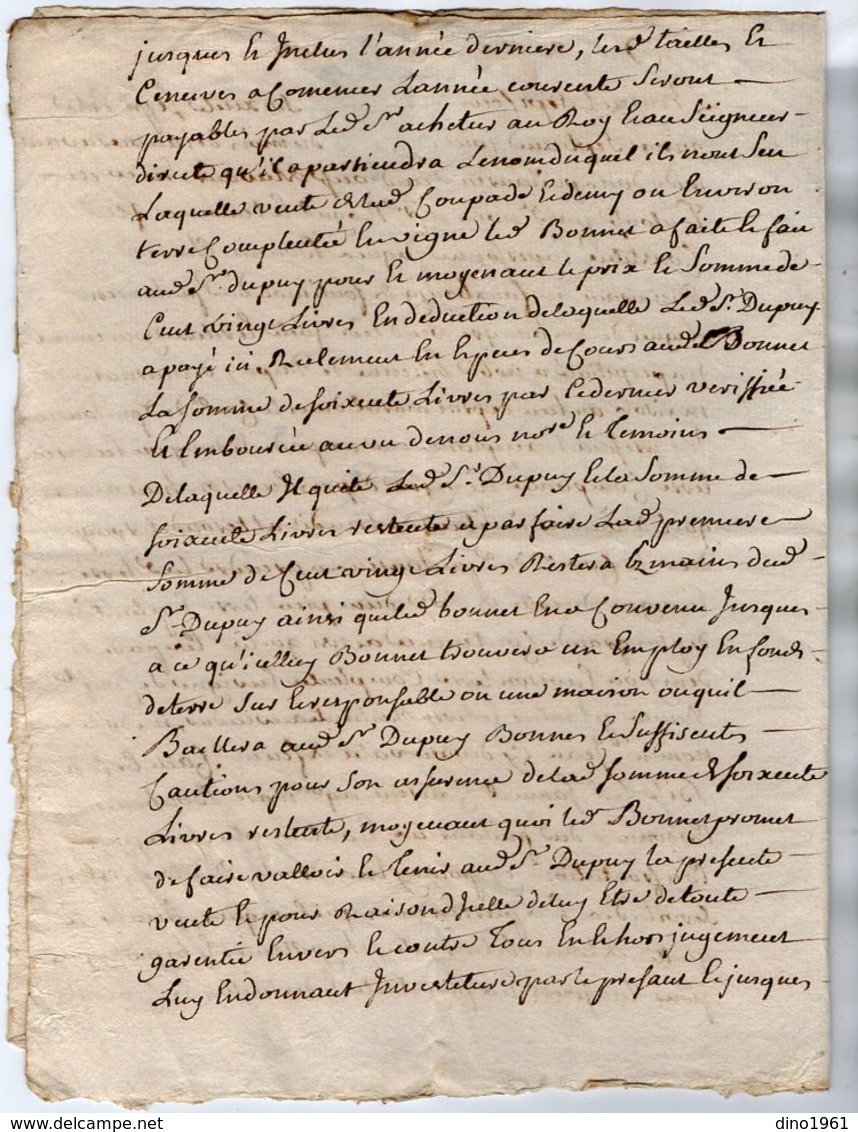 jusques et Inclus l'année derniere, lesd tailles et
Censives a Comencer Lannée courente seront
payables par Led Sr achetur au Roy et au Seigneur
directe qu'il apartiendra Le nom duquel ils n'ont Seu
Laquelle vente de lad Coupade et demy ou Environ
terre Complentée En vigne led Bonnet a faite et fait
aud Sr dupuy pour et moyenant le prix et Somme de
Cent vingt Livres En deduction de laquelle Led Sr Dupuy
a payé ici Reelement En Especes de Cours aud Bonnet
La somme de soixente Livres par ce dernier veriffiée
et Emboursée au vu de nous nore et temoins
De laquelle Il quite Led Sr Dupuy et la Somme de
soixente Livres restente a parfaire Lad premiere
Somme de Cent vingt Livres Restera Ez mains dud
Sr Dupuy ainsi que led bonnet En a Convenu Jusques
a ce qu'icelluy Bonnet trouvera un Employ En fonds
de terre Sur et responsable ou une maison ou quil
Baillera aud Sr Dupuy Bonnes et Suffisentes
Cautions pour Son assurence de lad somme de soixente
Livres restente, moyenant quoi led Bonnet promet
de faire valloir et tenir aud Sr Dupuy la presente
vente et pour Raison d'Icelle de luy Etre de toute
garentie Envers et contre Tous En et hors jugement
Luy En donnant Investiture par le presant et jusques
dino1961